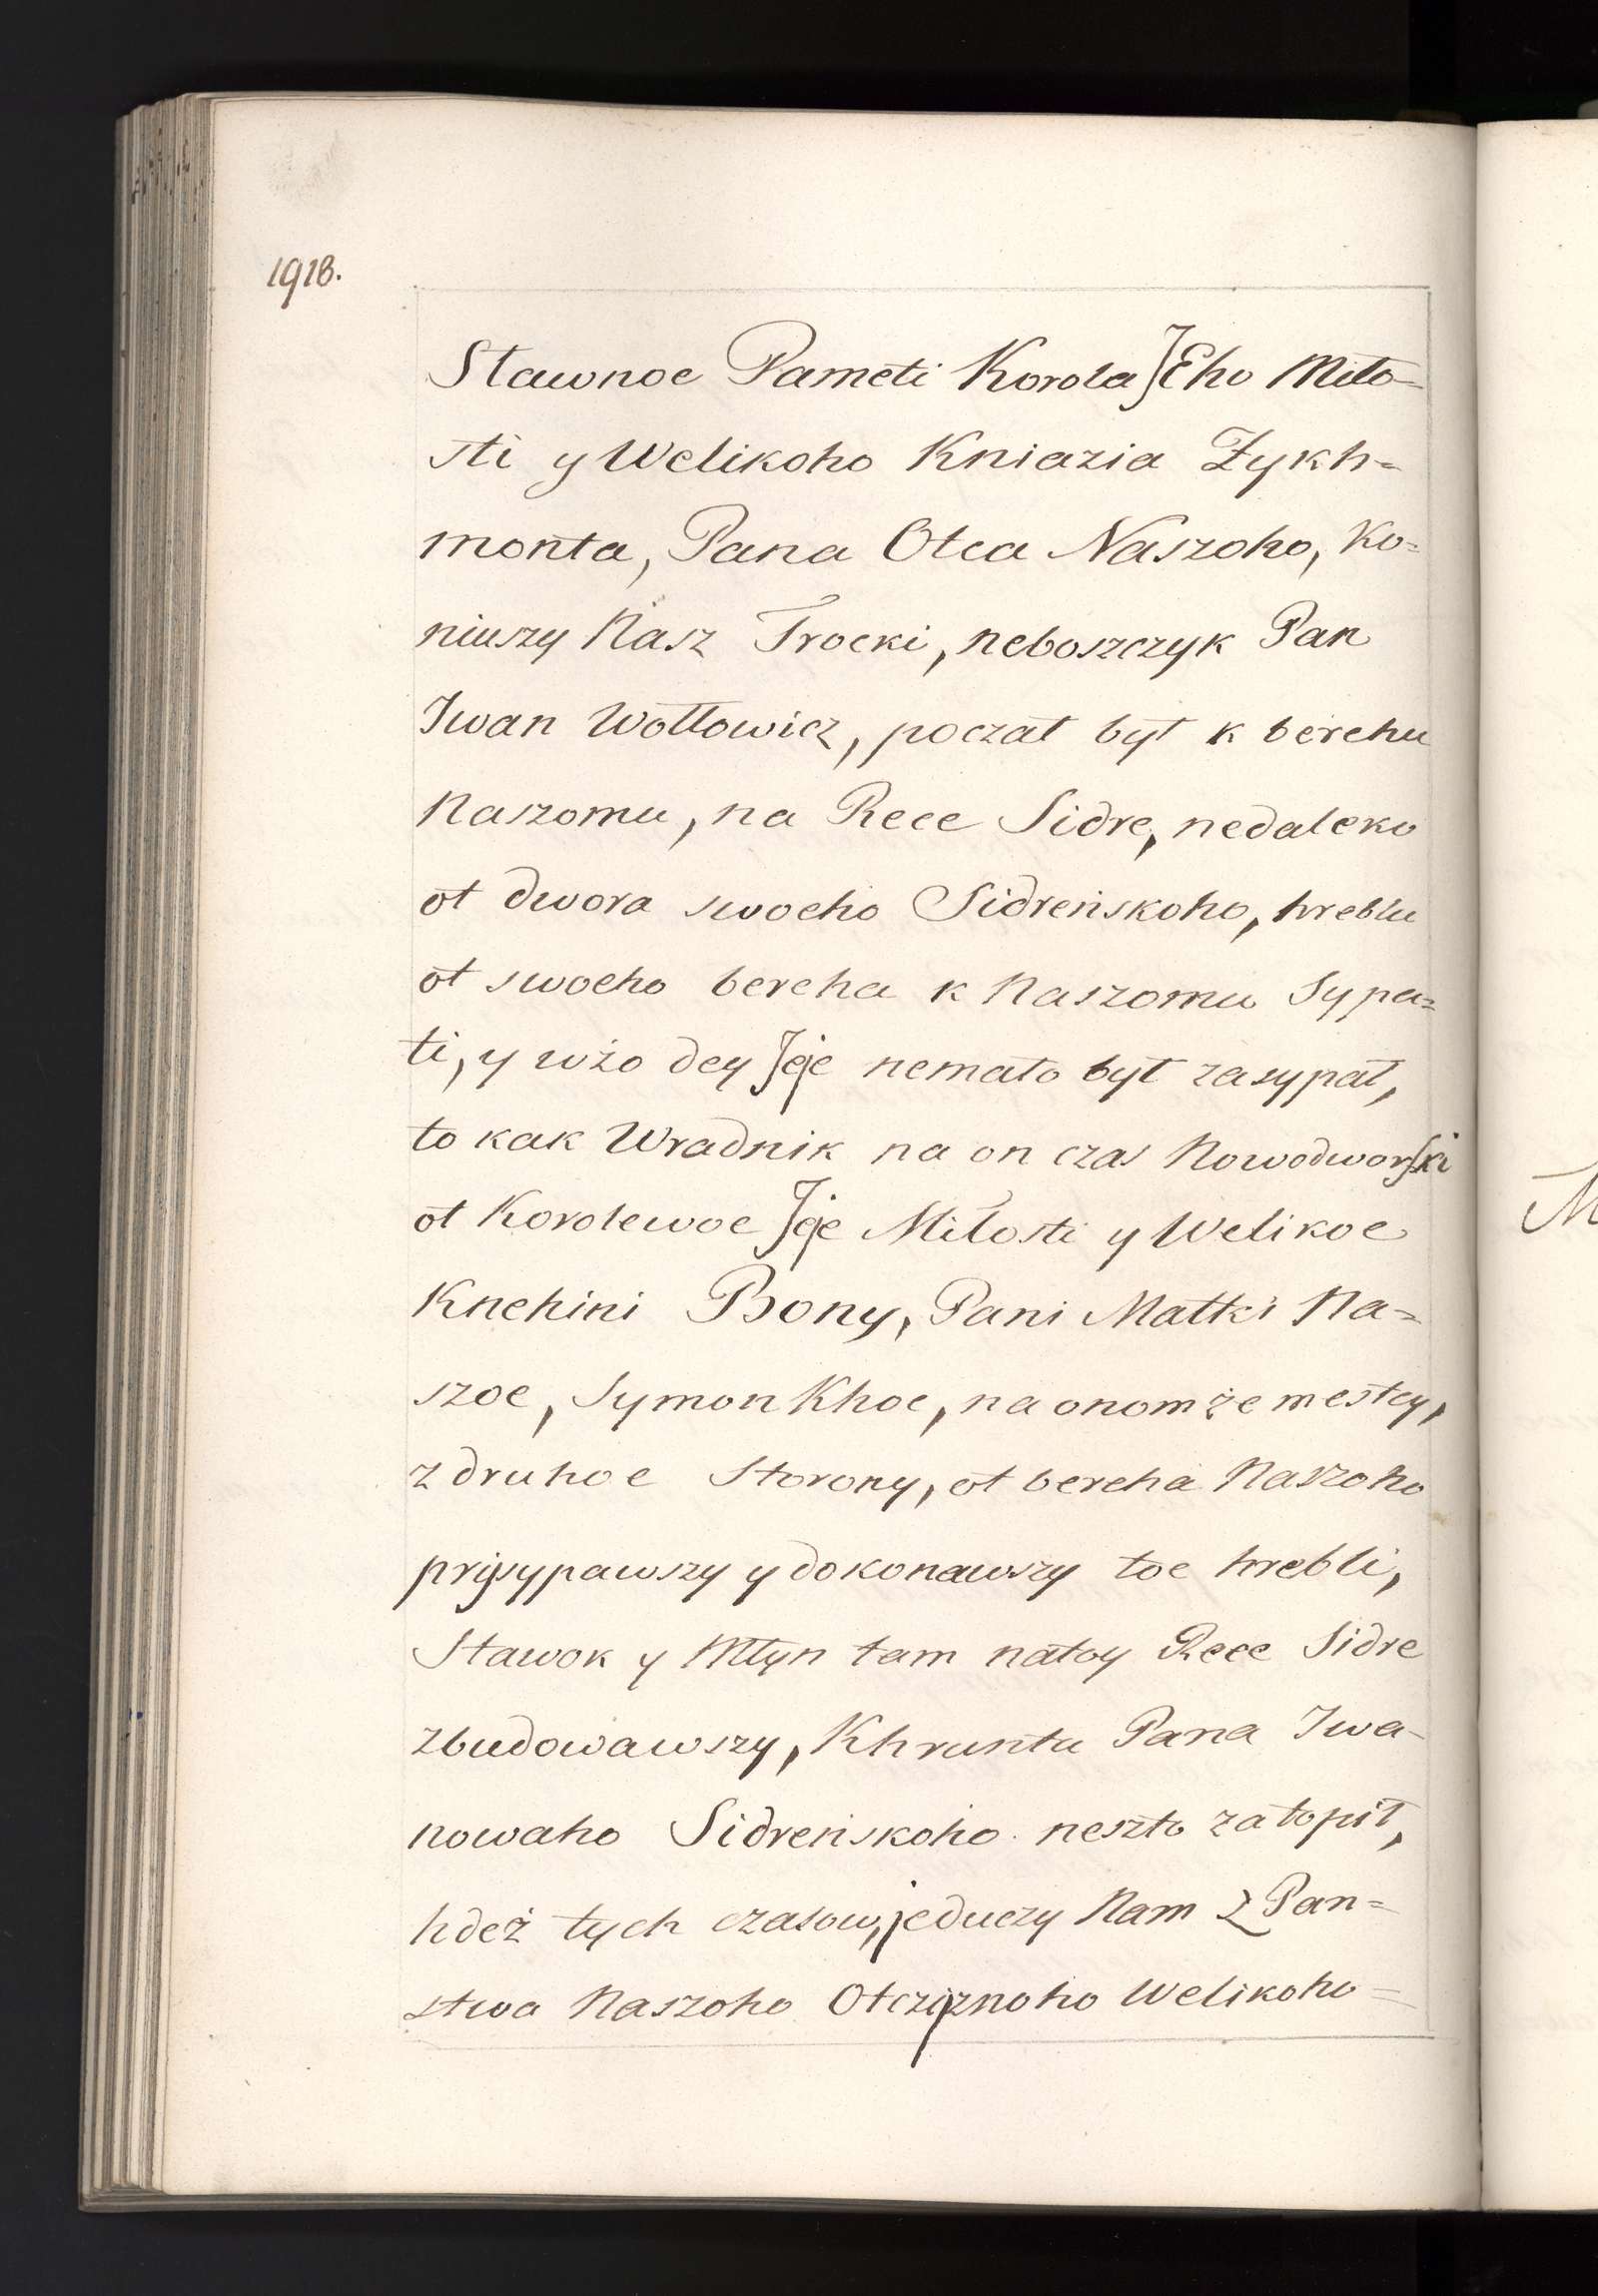 1918.
Sławnoe Pameti Korola JEho Miło=
sti y Welikoho Kniazia Żykh=
monta, Pana Otca Naszoho, Ko=
niuszy Nasz Trocki, neboszczyk Pan
Iwan Wołłowicz, poczał był k berehu
Naszomu, na Rece Sidre, nedaleko
ot dwora swoeho Sidreńskoho, hreblu
ot swoeho bereha k Naszomu Sypa=
ti, y wżo dey Jeje nemało był zasypał,
to kak Wradnik na on czas Nowodworski
ot Korolewoe Jeje Miłosti y Welikoe
Knehini Bony, Pani Matki Na=
szoe, Symon Khoe, na onom że mestcy,
z druhoe Storony, ot bereha Naszoho
prijsypawszy y dokonawszy toe hrebli,
Stawok y Młyn tam natoy Rece Sidre
zbudowawszy, Khruntu Pana Iwa-
nowaho Sidreńskoho neszto zatopił,
hdeż tych czasow, jeduczy Nam Z Pan=
stwa Naszoho Otczyznoho Welikoho=
M